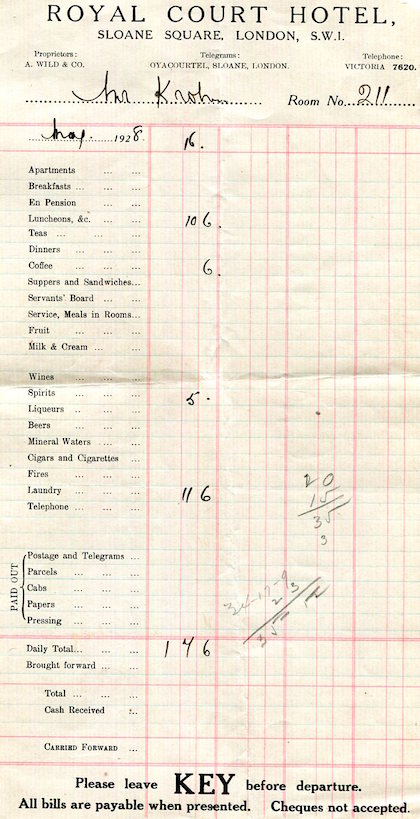 ROYAL COURT HOTEL,
SLOANE SQUARE, LONDON, S.W.1.
Proprietors: Telegrams: Telephone:
A. WILD & CO. OYACOURTEL, SLOANE, LONDON. VICTORIA 7620.
Mr Room No. 211
May 1928 16.
Apartments ... ...
Breakfasts ... ... ...
En Pension ... ...
Luncheons, &c. ... ... 10 6.
Teas ... ... ...
Dinners ... ...
Coffee ... ... ... 6.
Suppers and Sandwiches...
Servants' Board ... ...
Service, Meals in Rooms...
Fruit ... ... ...
Milk & Cream ... ...
Wines ... ... ...
Spirits ... ... ... 5.
Liqueurs .. ... ...
Beers ... ... ...
Mineral Waters ... ...
Cigars and Cigarettes ...
Fires ... ... ...
Laundry ... ... ... 11 6
Telephone ... ... ...
20
15
35
3
PAID OUT
Postage and Telegrams ...
Parcels ... ... ...
Cabs ... ... ...
Papers ... ... ...
Pressing ... ... ...
Daily Total... ... ... 1 7 6
Brought forward ... ...
Total ... ...
Cash Received ...
CARRIED FORWARD ...
Please leave KEY before departure.
All bills are payable when presented. Cheques not accepted.